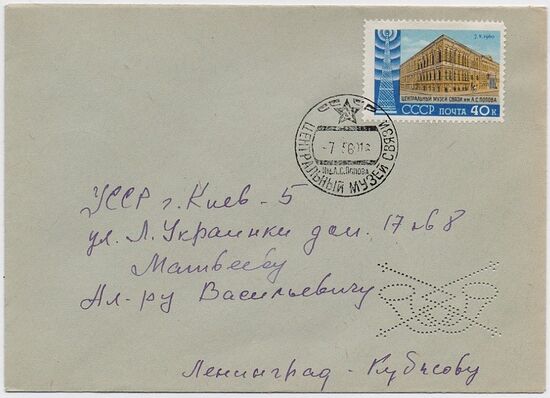 7.V.1960
ЦЕНТРАЛЬНЫЙ МУЗЕЙ СВЯЗИ им. А.С. ПОПОВА
СССР ПОЧТА 40 К
СССР
ЦЕНТРАЛЬНЫЙ МУЗЕЙ СВЯЗИ
-7 5 60
им. А.С. Попова
УССР г. Киев - 5
ул. Л. Украинки дом. 17 кв 8
Матвееву
Ал-ру Васильевичу
Ленинград - Кубасову